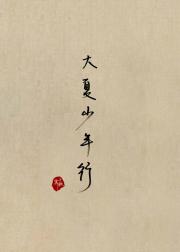 大夏少年行